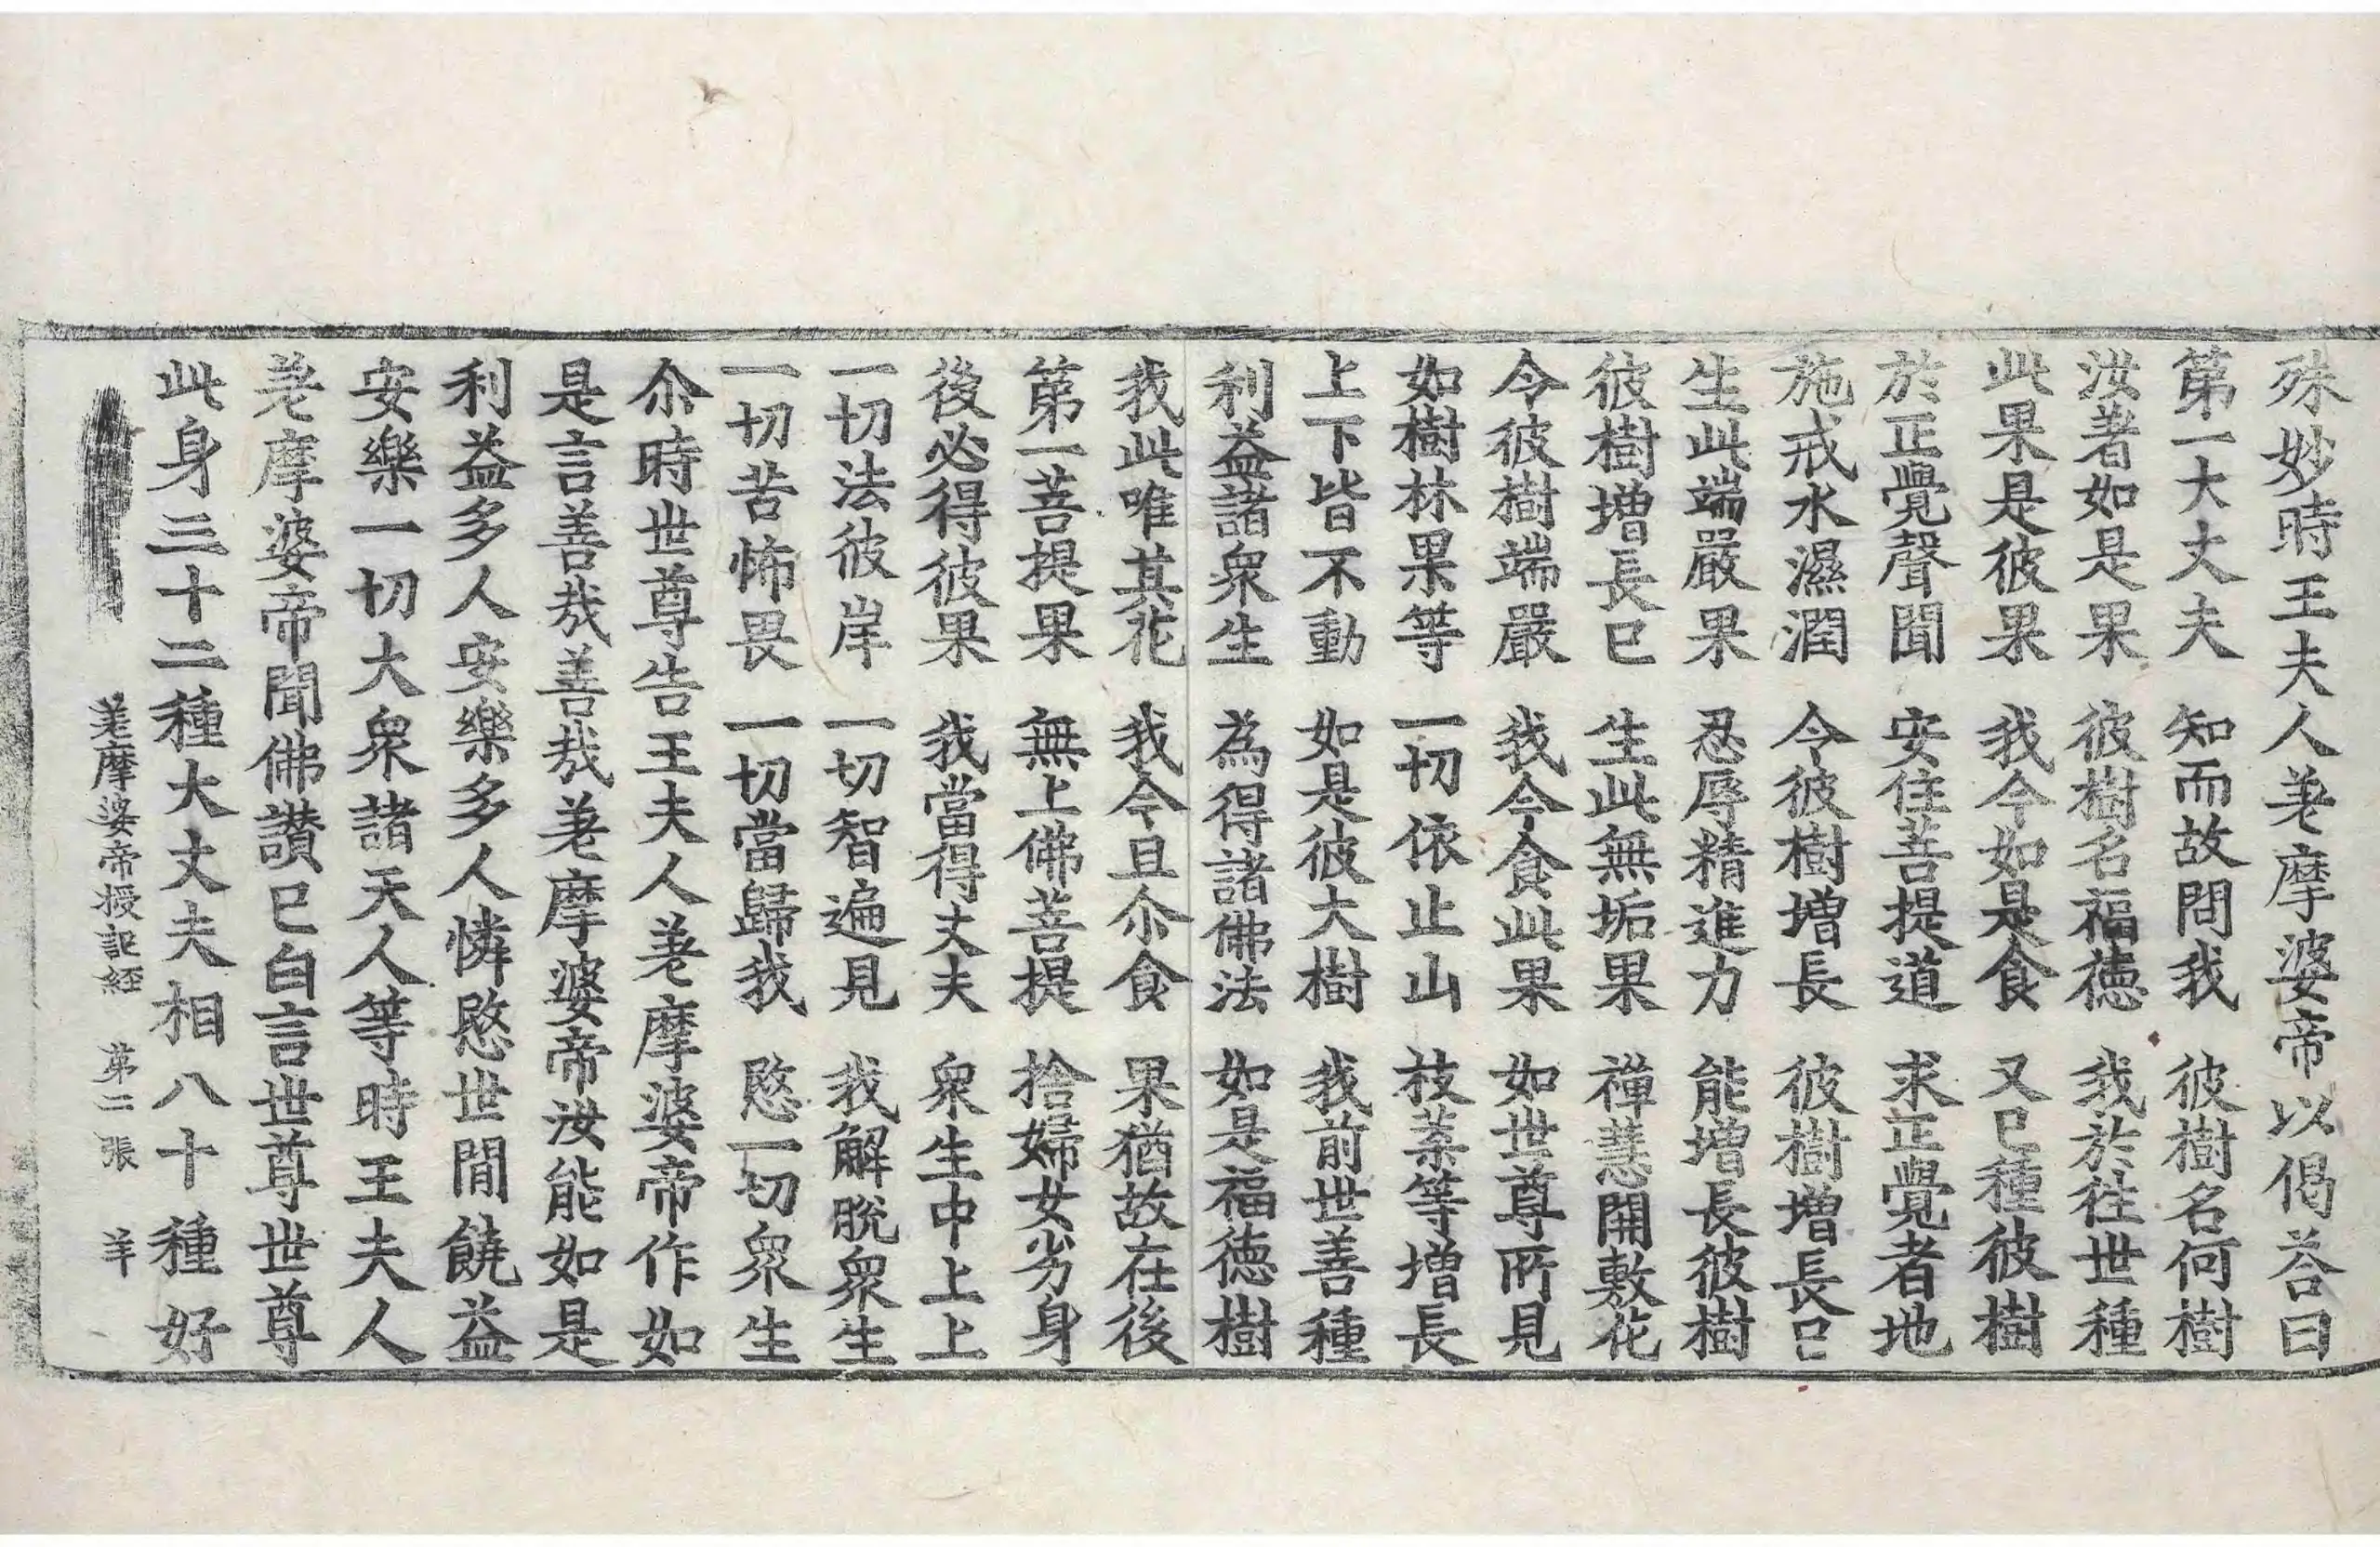 殊妙時王夫人差摩婆帝以偈荅曰
第一大丈夫　知而故問我　彼樹名何樹
汝著如是果　彼樹名福德　我於往世種
此果是彼果　我今如是食　又已種彼樹
於正覺聲聞　安住菩提道　求正覺者地
施戒水濕潤　今彼樹增長　彼樹增長已
生此端嚴果　忍辱精進力　能增長彼樹
彼樹增長已　生此無垢果　禪慧開敷花
今彼樹端嚴　我今食此果　如世尊所見
如樹林果等　一切依止山　枝葉等增長
上下皆不動　如是彼大樹　我前世善種
利益諸衆生　為得諸佛法　如是福德樹
我此唯其花　我今且尒食　果猶故在後
第一菩提果　無上佛菩提　捨婦女劣身
後必得彼果　我當得丈夫　衆生中上上
一切法彼岸　一切智遍見　我解脫衆生
一切苦怖畏　一切當歸我　愍一切衆生
尒時世尊告王夫人差摩婆帝作如
是言善哉善哉差摩婆帝汝能如是
利益多人安樂多人憐愍世間饒益
安樂一切大衆諸天人等時王夫人
差摩婆帝聞佛讚已白言世尊世尊
此身三十二種大丈夫相八十種好
差摩婆帝授記経　第二張　羊